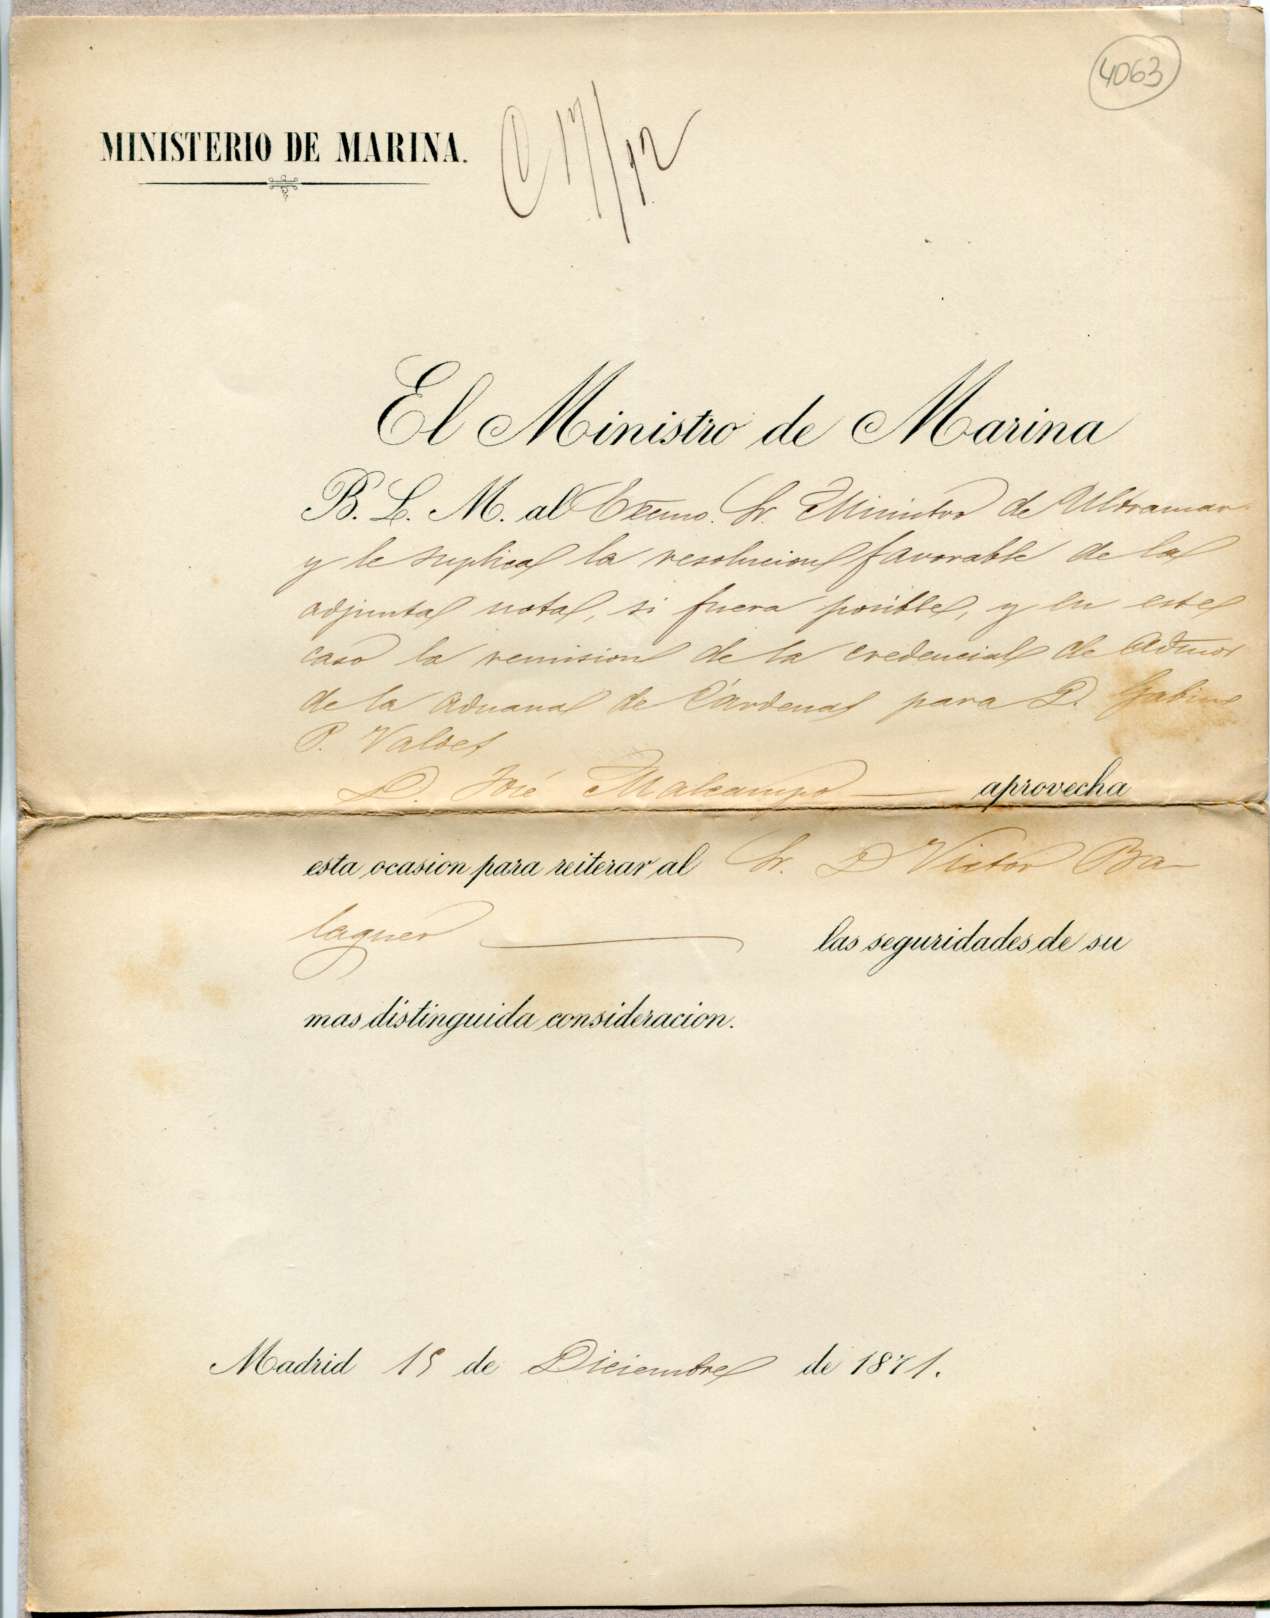 4063
MINISTERIO DE MARINA.
C 17/12
El Ministro de Marina
B. L. M. al Excmo. Sr. Ministro de Ultramar
y le suplica la resolucion favorable de la
adjunta nota, si fuera posible, y en este
caso la remision de la credencial de Admor
de la aduana de Cárdenas para D. Gabino
P. Valdes
D. José Malcampo — aprovecha
esta ocasion para reiterar al Sr. D Victor Ba-
laguer — las seguridades de su
mas distinguida consideracion.
Madrid 15 de Diciembre de 1871.